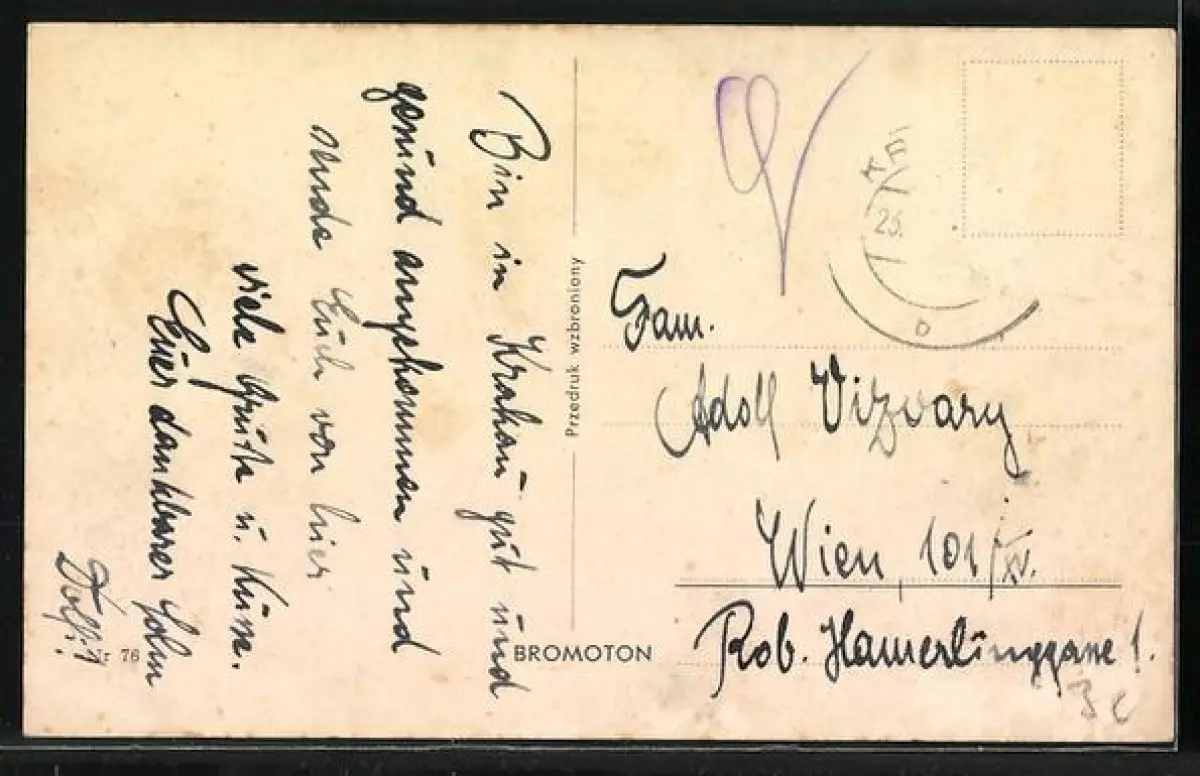 Bin in Krakau gut und
gesund angekommen und
sende Euch von hier
viele Grüße u. Küsse.
Euer dankbarer Sohn
Dolfi!
Nr 76
Przedruk wzbroniony
BROMOTON
25.
b
Fam.
Adolf Vizvary
Wien, 101/XV.
Rob. Hamerlinggasse 1.